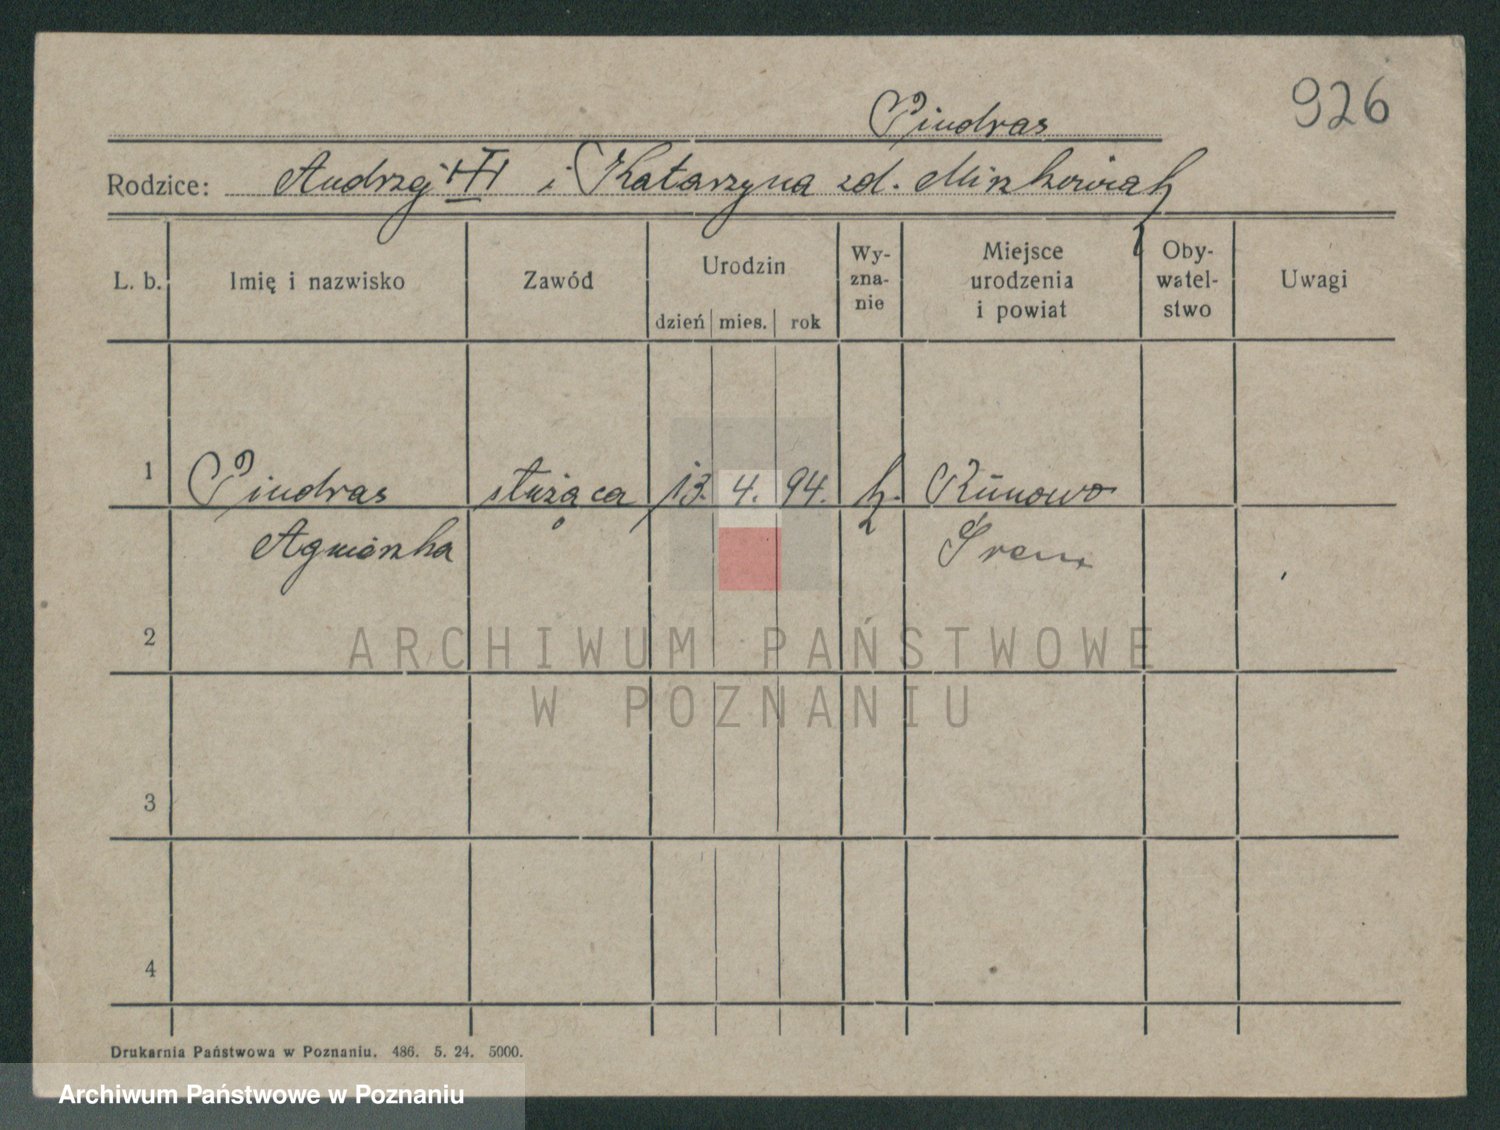 926
Pindras
Rodzice: Andrzej i Katarzyna zd.
L. b. Imię i nazwisko Zawód Urodzin Wy-zna-nie Miejsce urodzenia i powiat Oby-watel-stwo Uwagi
dzień mies. rok
1 Pindras służąca 13. 4. 94. k. Runowo
Agnieszka Śrem
2
ARCHIWUM PAŃSTWOWE
W POZNANIU
3
4
Drukarnia Państwowa w Poznaniu. 486. 5. 24. 5000.
Archiwum Państwowe w Poznaniu